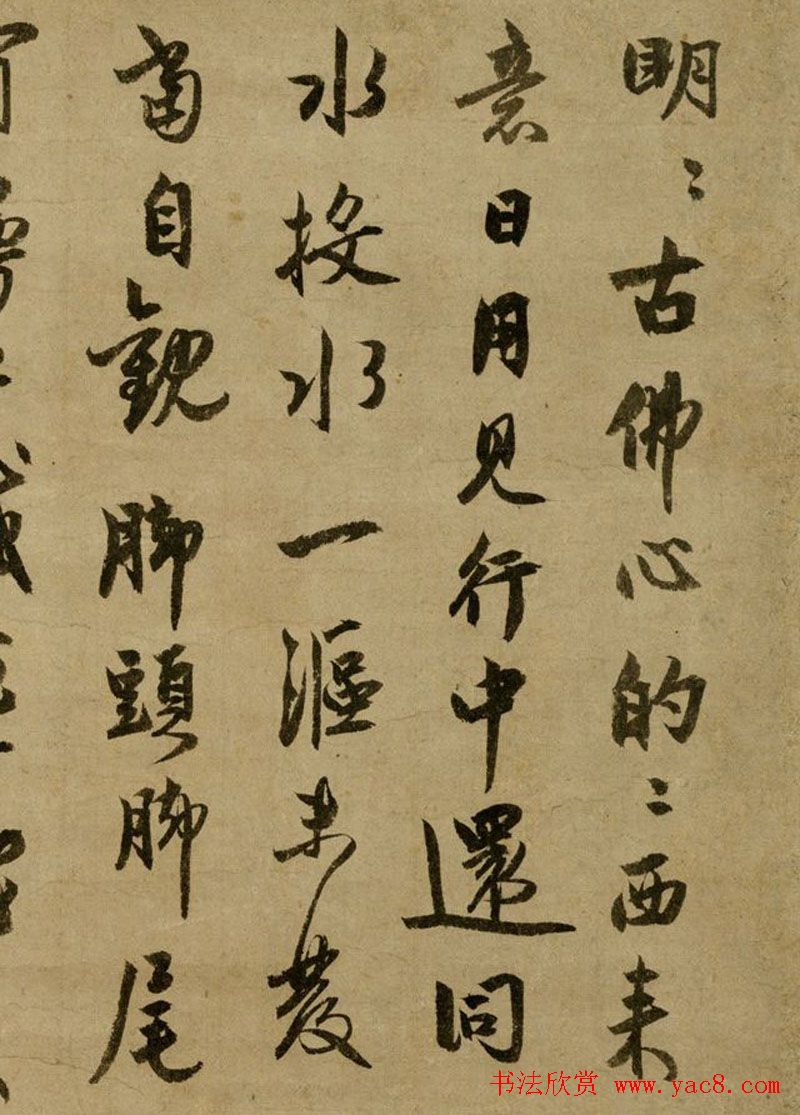 明〻古佛心的〻西来
意日用見行中還同
水投水一漚未發
當自觀脚頭脚尾
书法欣赏 www.yac8.com